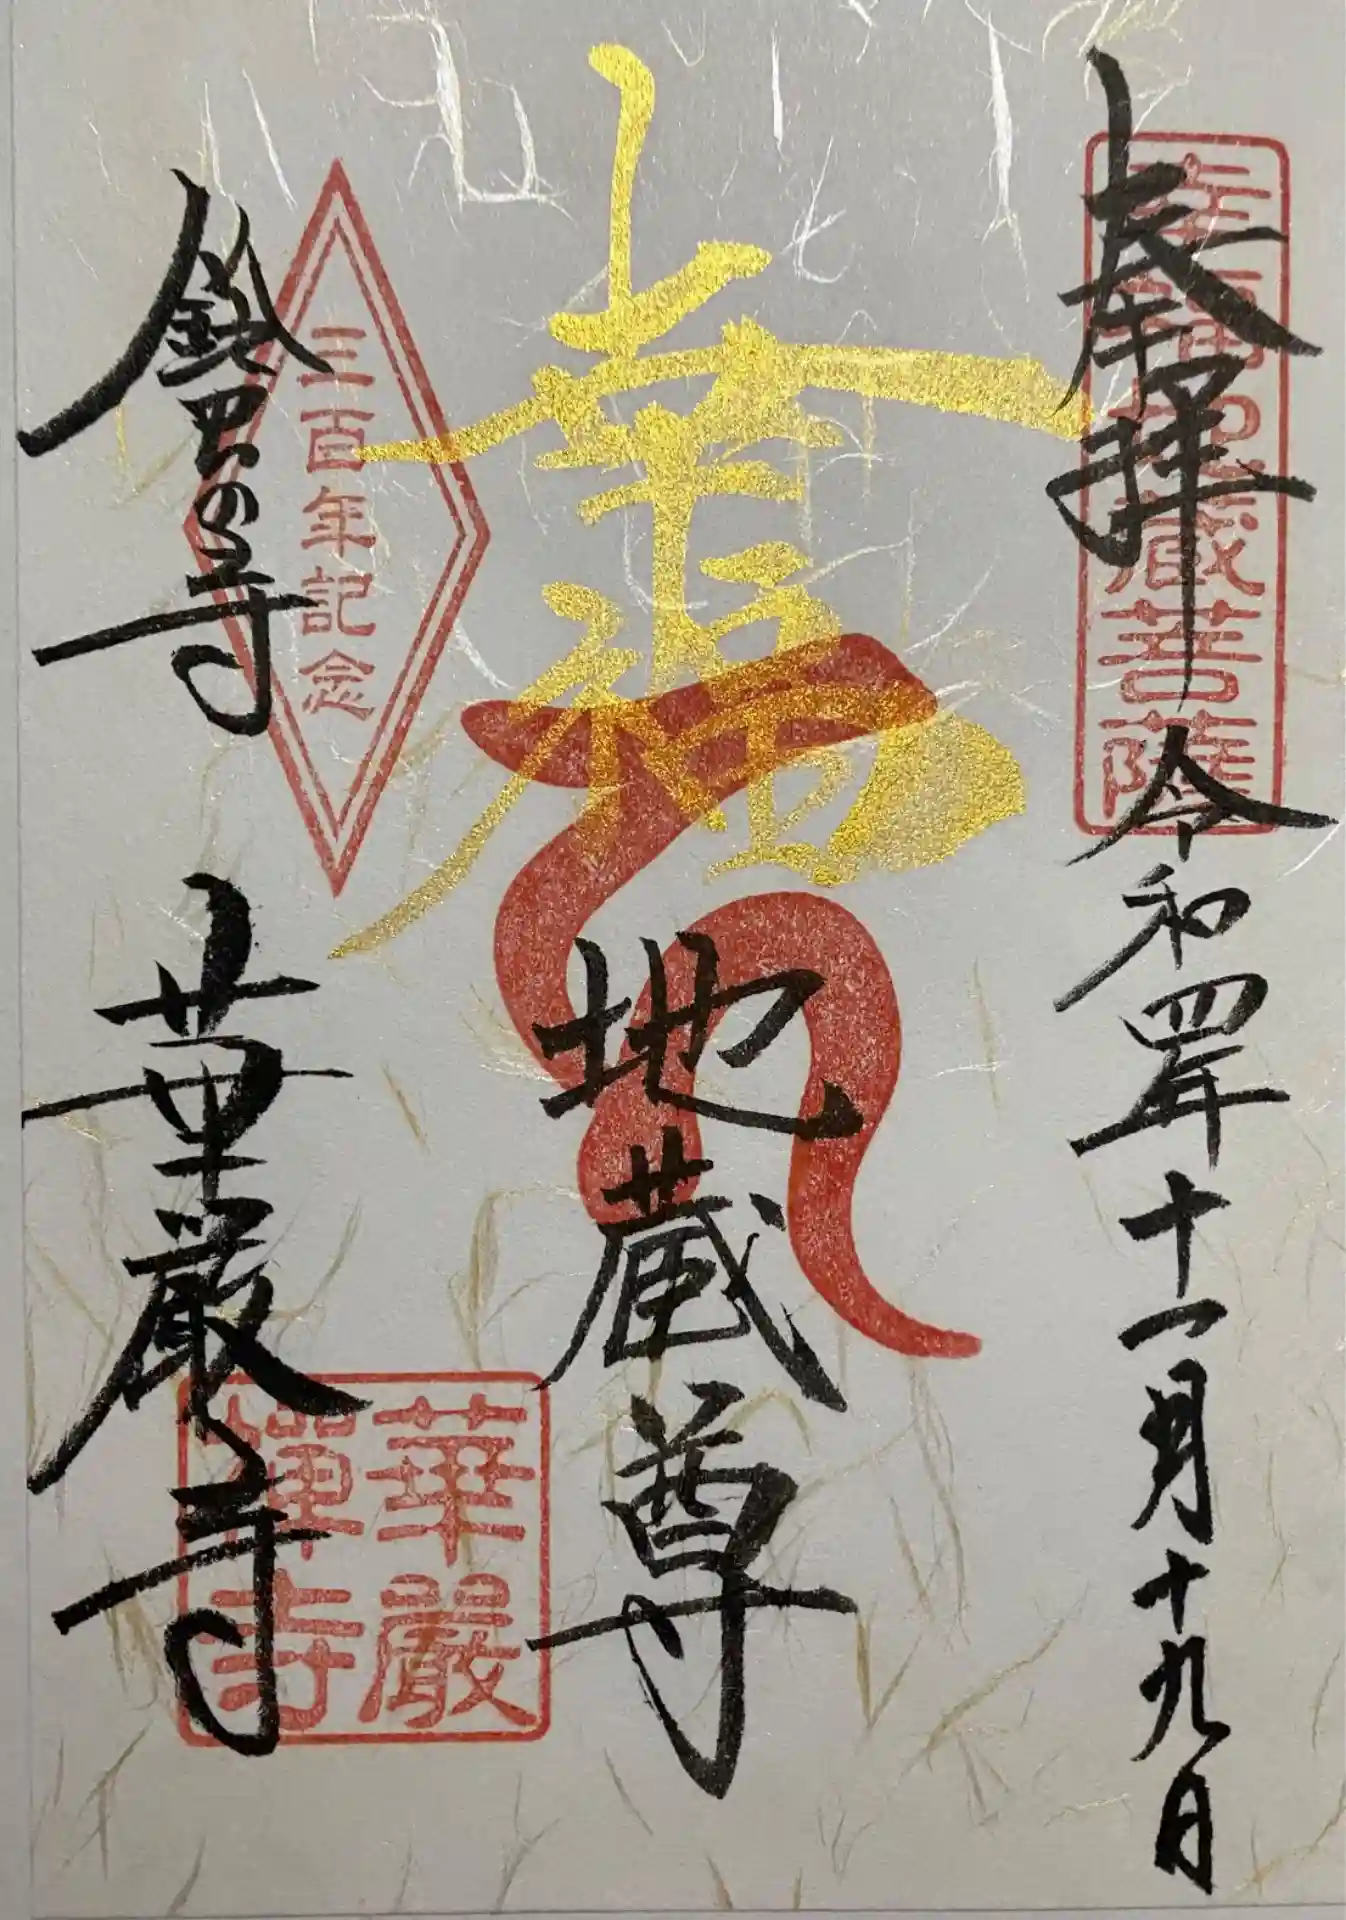 奉拝
令和四年十一月十九日
幸福地蔵菩薩
幸福
地蔵尊
三百年記念
鈴虫の寺
華厳寺
華嚴
禅寺